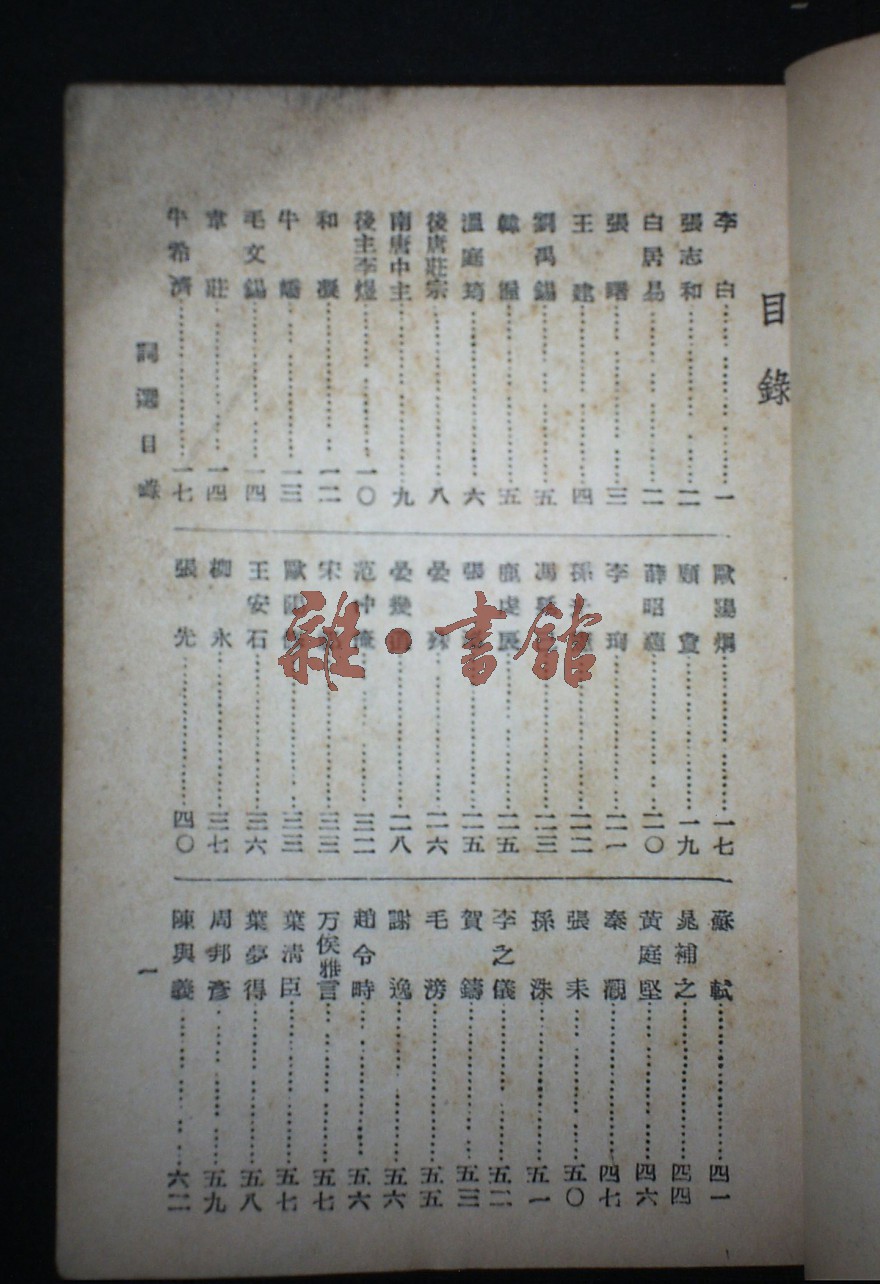 目錄
李白 一
張志和 二
白居易 二
張曙 三
王建 四
劉禹錫 五
韓偓 五
溫庭筠 六
後唐莊宗 八
南唐中主 九
後主李煜 一〇
和凝 一二
牛嶠 一三
毛文錫 一四
韋莊 一四
牛希濟 一七
歐陽烱 一七
顧敻 一九
薛昭蘊 二〇
李珣 二一
孫 二二
馮延 二三
鹿虔扆 二五
張 二五
晏殊 二六
晏幾道 二八
范仲淹 三二
宋 三三
歐陽修 三三
王安石 三六
柳永 三七
張先 四〇
蘇軾 四一
晁補之 四四
黃庭堅 四六
秦觀 四七
張耒 五〇
孫洙 五一
李之儀 五二
賀鑄 五三
毛滂 五五
謝逸 五六
趙令時 五六
万俟雅言 五七
葉清臣 五七
葉夢得 五八
周邦彥 五九
陳與義 六二
詞選目錄
一
雜·書館